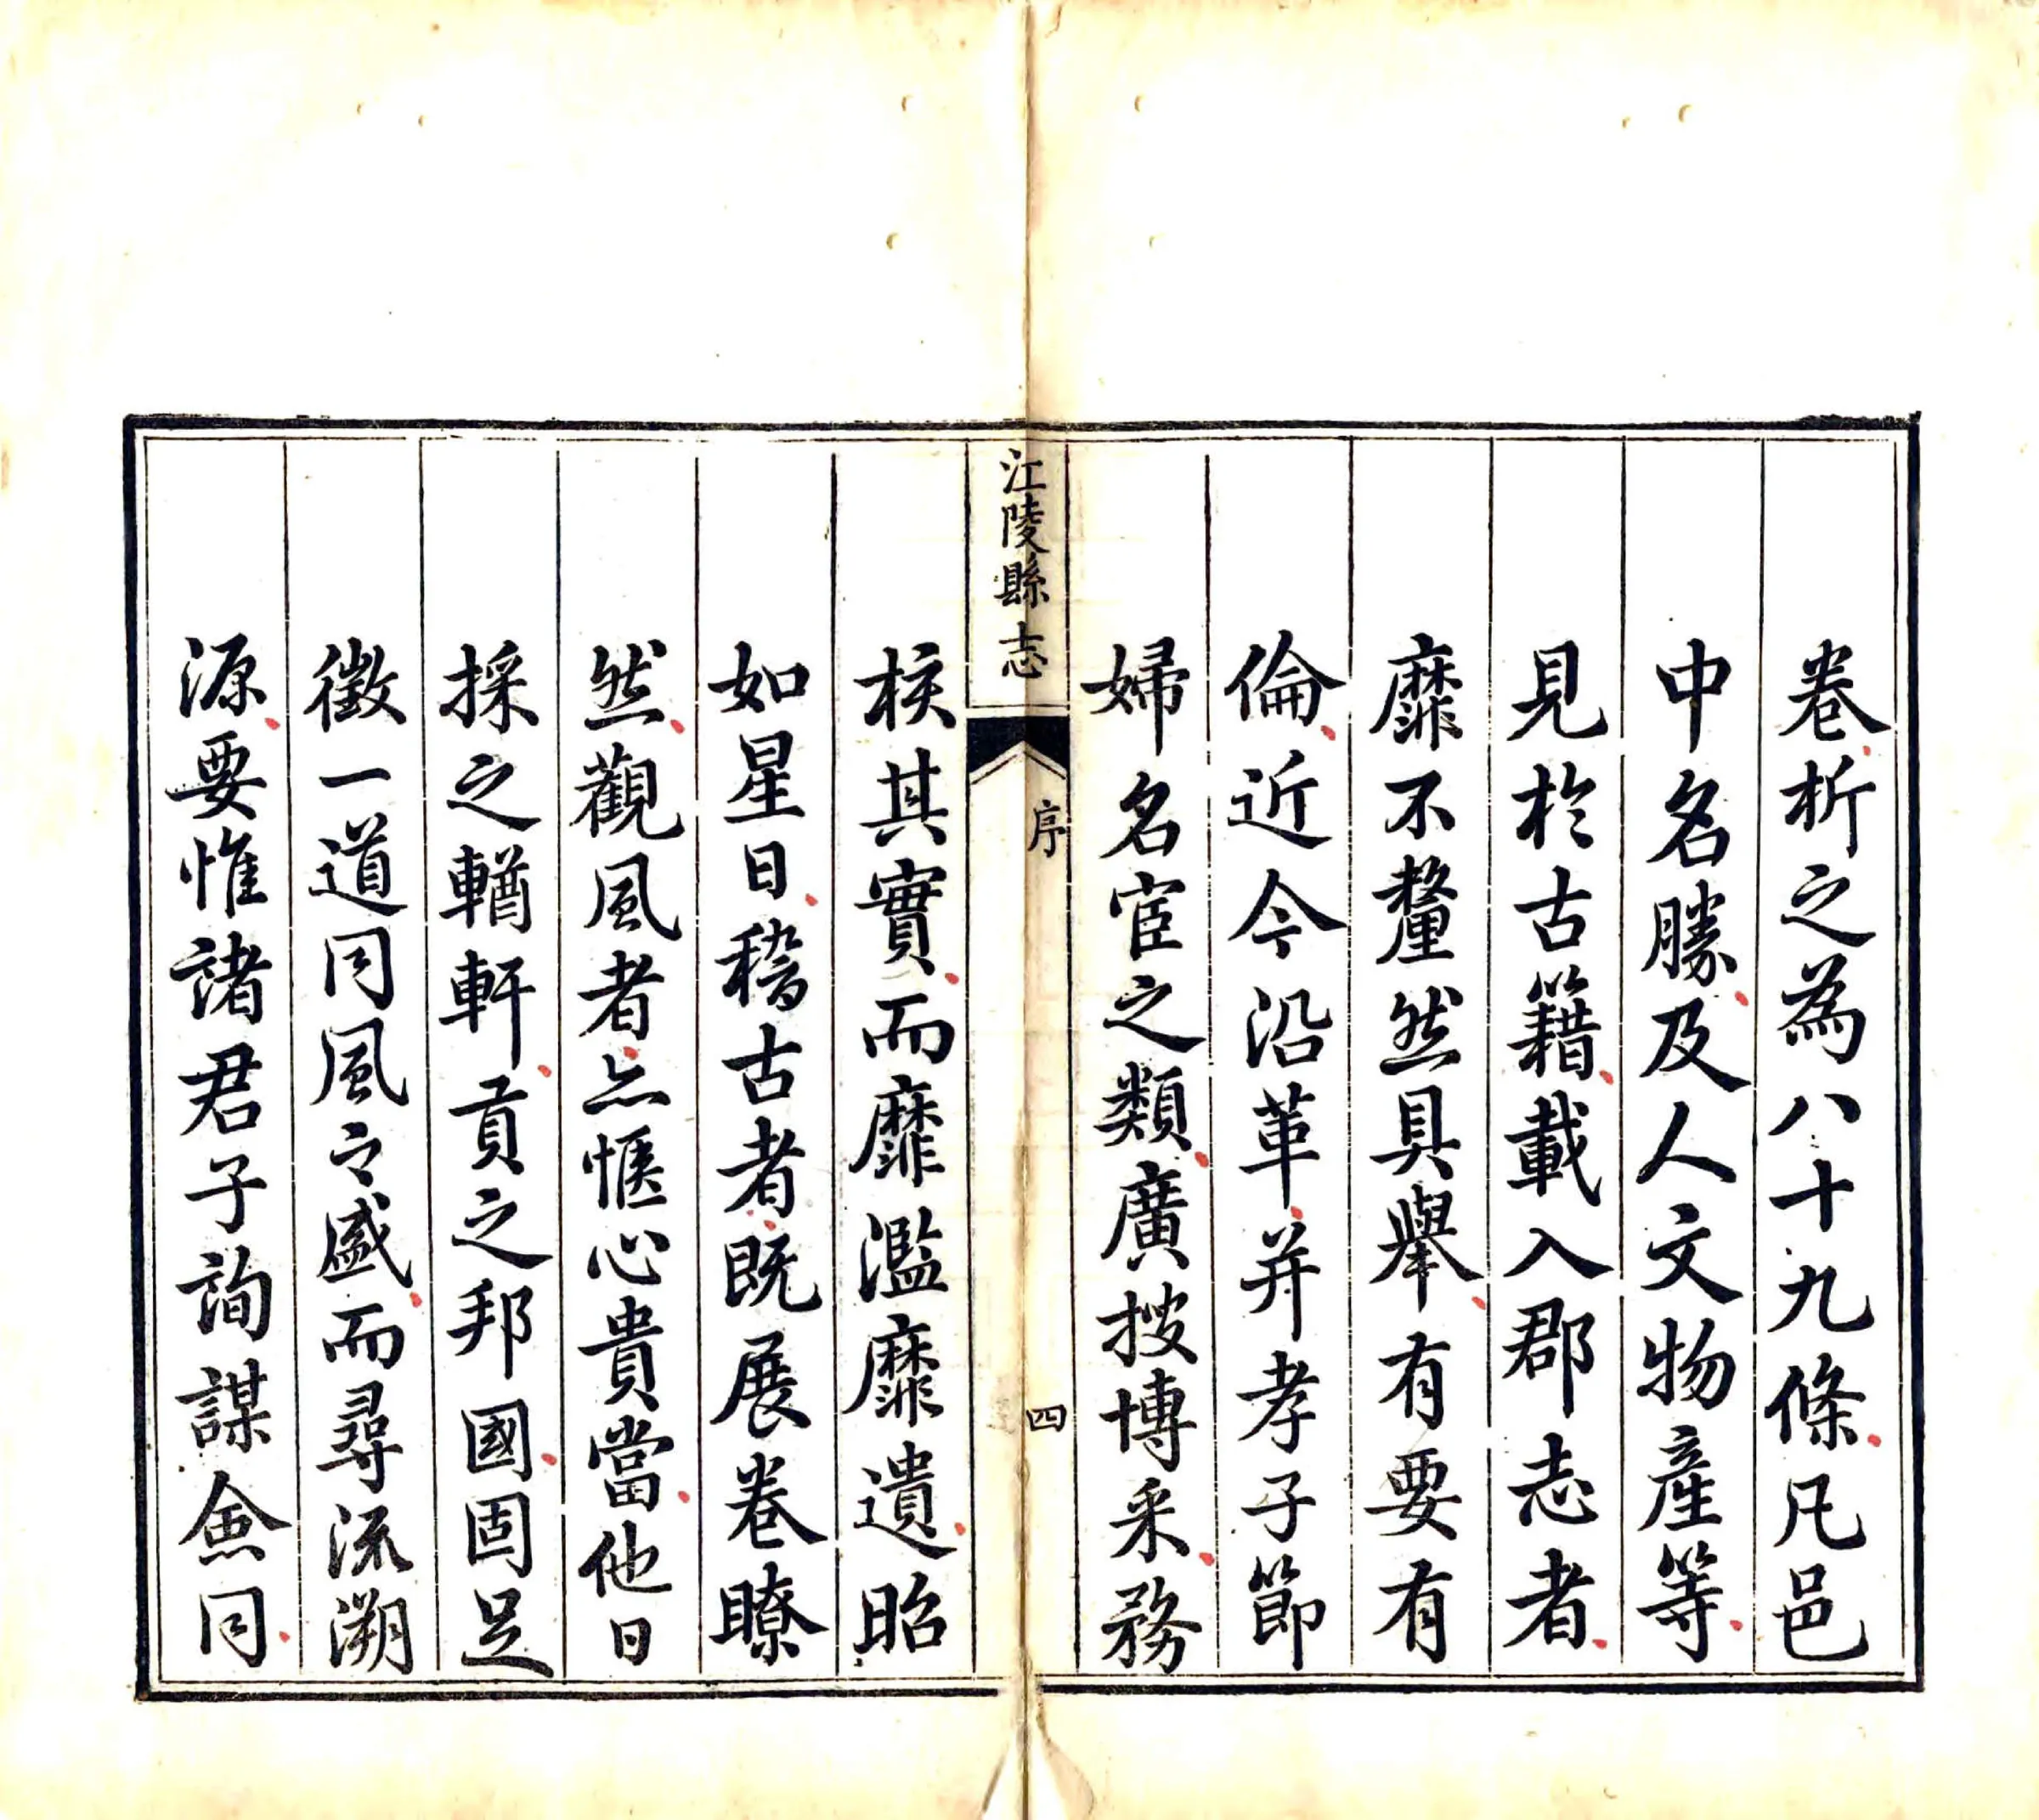 卷析之為八十九條凡邑
中名勝及人文物產等
見於古籍載入郡志者
靡不釐然具舉有要有
倫近今沿革并孝子節
婦名宦之類廣搜博采務
江陵縣志
序
四
核其實而靡濫靡遺昭
如星日稽古者既展卷瞭
然觀風者亦愜心貴當他日
採之輶軒貢之邦國固足
徵一道同風之盛而尋流溯
源要惟諸君子詢謀僉同